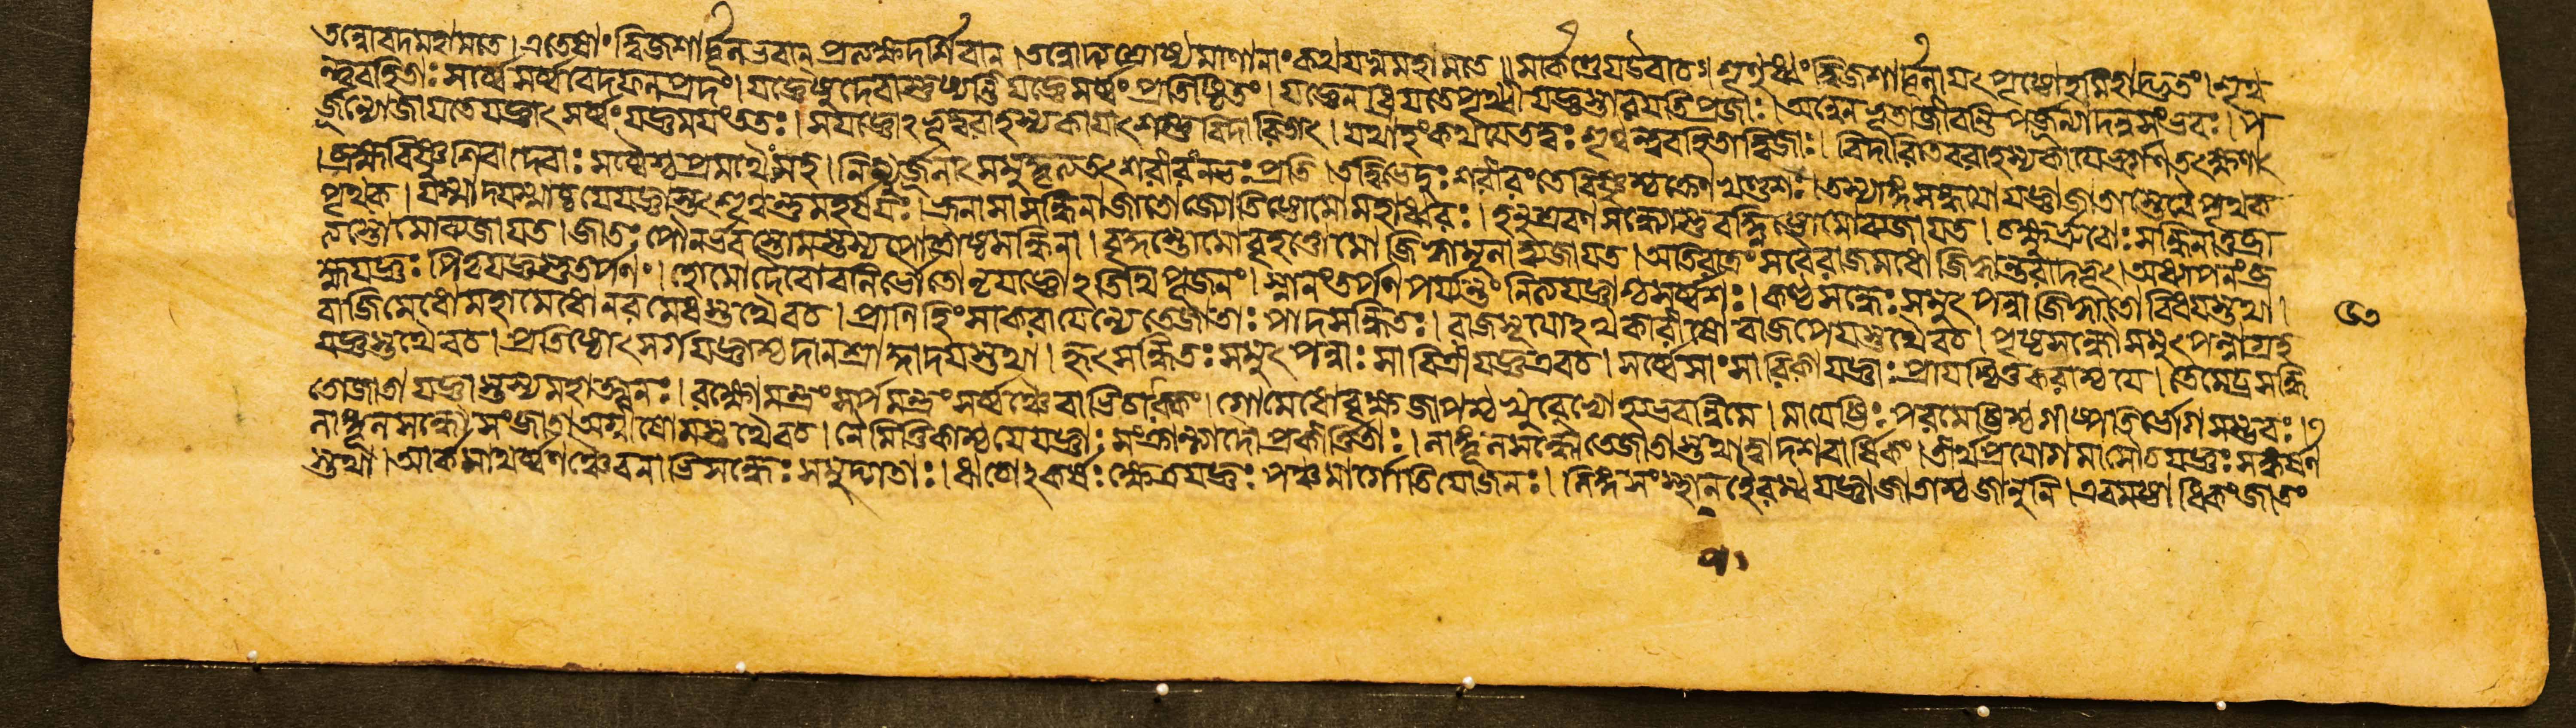 তন্নোবদমহামতে। এতেষাং দ্বিজশার্দ্দূলভবান্ প্রত্যক্ষদর্শিবান্। তন্নোদ্যশ্রোষ্যমাণানাং কথযস্বমহামতে॥ মার্কণ্ডেযউবাচ। শৃণুধ্বং দ্বিজশার্দ্দূলাযৎ পৃষ্টোহংমহাদ্ভুতং। শৃণ্ব
ন্ত্ববহিতাঃ সর্ব্বেসর্ব্ববেদফলপ্রদং। যজ্ঞেষুদেবাস্তুষ্যন্তি যজ্ঞেসর্ব্বং প্রতিষ্ঠিতং। যজ্ঞেনধ্রিযতেপৃথ্বী যজ্ঞস্তারযতিপ্রজাঃ। অন্নেনভূতাজীবন্তি পর্জ্জন্যাদন্নসংভবঃ। প
র্জ্জন্যোজাযতেযজ্ঞাৎ সর্ব্বং যজ্ঞমযংততঃ। সযজ্ঞোঽভূদ্বরাহস্যকাযাৎ শম্ভুবিদারিতাৎ। যথাহংকথযেতদ্বঃ শৃণ্বন্ত্ববহিতাদ্বিজাঃ। বিদারিতেবরাহস্যকাযেভর্গেণতৎক্ষণাৎ
। ব্রহ্মবিষ্ণুশিবাদেবাঃ সর্ব্বৈশ্চপ্রমথৈঃসহ। নিন্যুর্জ্জলাৎ সমুদ্ধৃত্যতৎ শরীরংনভঃ প্রতি। তদ্বিভেদুঃ শরীরংতেবিষ্ণুশ্চক্রেণ খণ্ডশঃ। তস্যাঙ্গসন্ধযোযজ্ঞাজাতাস্তেবৈ পৃথক্
পৃথক্। যস্মাদযস্মাচ্চযেযজ্ঞাস্তৎ শৃণ্বন্তুমহর্ষযঃ। ভ্রূনাসাসন্ধিনাজাতোজ্যোতিষ্টোমোমহাধ্বরঃ। হনুশ্রবণসন্ধ্যোস্তুবহ্নিষ্টোমোব্যজাযত। চক্ষুর্ভ্রুবোঃ সন্ধিনাতুব্রা
ত্যস্তোমোব্যজাযত। জাতঃ পৌনর্ভবস্তোমস্তস্যপোত্রৌষ্ঠসন্ধিনা। বৃদ্ধস্তোমোবৃহৎস্তোমৌ জিহ্বামূলাদ্ব্যজাযত। অতিরাত্রং সবৈরাজমধোজিহ্বান্তরাদভূৎ। অধ্যাপনংব্র
হ্মযজ্ঞঃ পিতৃযজ্ঞস্তুতর্পণং। হোমোদৈবোবলির্ভৌতোনৃযজ্ঞোঽতিথিপূজনং। স্নানংতর্পণপর্য্যন্তং নিত্যযজ্ঞাশ্চসর্ব্বশঃ। কণ্ঠসন্ধেঃ সমুৎপন্নাজিহ্বাতোবিধযস্তথা।
বাজিমেধোমহামেধোনরমেধস্তথৈবচ। প্রাণিহিংসাকরাযেন্যেতেজাতাঃ পাদসন্ধিতঃ। রাজসূযোঽর্থকারীচ বাজপেযস্তথৈবচ। পৃষ্ঠসন্ধৌসমুৎপন্নাগ্রহ
যজ্ঞস্তথৈবচ। প্রতিষ্ঠোৎসর্গযজ্ঞাশ্চদানশ্রাদ্ধাদযস্তথা। হৃৎসন্ধিতঃ সমুৎপন্নাঃ সাবিত্রীযজ্ঞএবচ। সর্ব্বেসাংসারিকাযজ্ঞাঃ প্রাযশ্চিত্তকরাশ্চযে। তেমেঢ্রসন্ধি
তোজাতাযজ্ঞাস্তস্যমহাত্মনঃ। রক্ষঃসত্রংসর্পসত্রং সর্ব্বঞ্চৈবাভিচারিকং। গোমেধোবৃক্ষজাপশ্চখুরেভ্যোহ্যভবন্নিমে। মাযেষ্টিঃ পরমেষ্টিশ্চগীষ্পতির্ভোগসম্ভবঃ।
লাঙ্গূলসন্ধৌসংজাতাঅগ্নীষোমস্তথৈবচ। নৈমিত্তিকাশ্চযেযজ্ঞাঃ সংক্রান্ত্যাদৌপ্রকীর্ত্তিতাঃ। লাঙ্গূলসন্ধৌতেজাতাস্তথাদ্বাদশবার্ষিকং। তীর্থপ্রযোগসামৌচযজ্ঞঃ সঙ্কর্ষণ
স্তথা। আর্কমাথর্ব্বণঞ্চৈবনাভিসন্ধেঃ সমুদ্গতাঃ। ঋচোৎকর্ষঃ ক্ষেত্রযজ্ঞঃ পঞ্চমার্গোতিযোজনঃ। লিঙ্গসংস্থানহৈরম্বযজ্ঞাজাতাশ্চজানুনি। এবমষ্টাধিকংজাতং